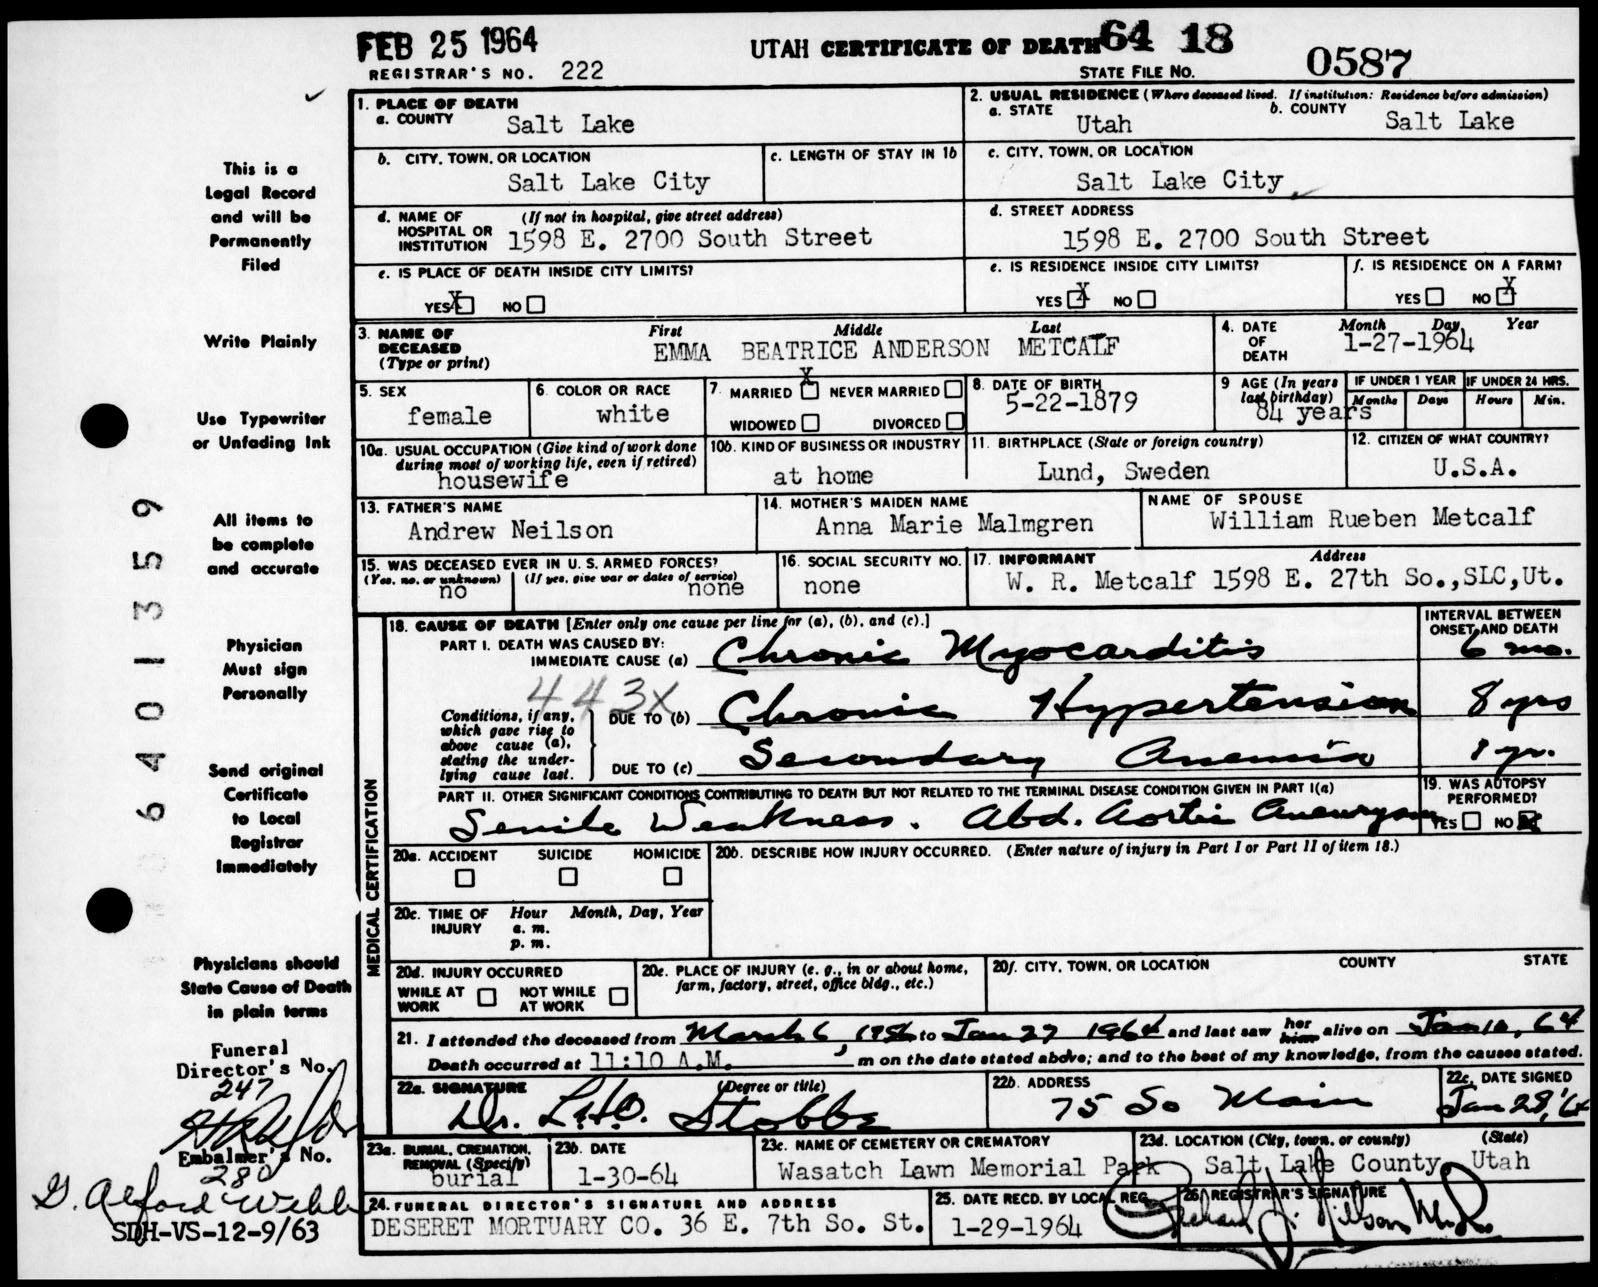 FEB 25 1964
UTAH CERTIFICATE OF DEATH 64 18 0587
REGISTRAR'S NO. 222
STATE FILE NO.
1. PLACE OF DEATH
a. COUNTY Salt Lake
2. USUAL RESIDENCE (Where deceased lived. If institution: Residence before admission)
a. STATE Utah b. COUNTY Salt Lake
b. CITY, TOWN, OR LOCATION Salt Lake City
c. LENGTH OF STAY IN 1b
c. CITY, TOWN, OR LOCATION Salt Lake City
d. NAME OF HOSPITAL OR INSTITUTION (If not in hospital, give street address) 1598 E. 2700 South Street
d. STREET ADDRESS 1598 E. 2700 South Street
e. IS PLACE OF DEATH INSIDE CITY LIMITS?
YES X NO
e. IS RESIDENCE INSIDE CITY LIMITS?
YES X NO
f. IS RESIDENCE ON A FARM?
YES NO X
3. NAME OF DECEASED (Type or print)
First Middle Last
EMMA BEATRICE ANDERSON METCALF
4. DATE OF DEATH Month Day Year
1-27-1964
5. SEX female
6. COLOR OR RACE white
7. MARRIED X NEVER MARRIED
WIDOWED DIVORCED
8. DATE OF BIRTH 5-22-1879
9 AGE (In years last birthday) 84 years
IF UNDER 1 YEAR Months Days
IF UNDER 24 HRS. Hours Min.
10a. USUAL OCCUPATION (Give kind of work done during most of working life, even if retired) housewife
10b. KIND OF BUSINESS OR INDUSTRY at home
11. BIRTHPLACE (State or foreign country) Lund, Sweden
12. CITIZEN OF WHAT COUNTRY? U.S.A.
13. FATHER'S NAME Andrew Neilson
14. MOTHER'S MAIDEN NAME Anna Marie Malmgren
NAME OF SPOUSE William Rueben Metcalf
15. WAS DECEASED EVER IN U. S. ARMED FORCES?
(Yes, no, or unknown) no (If yes, give war or dates of service) none
16. SOCIAL SECURITY NO. none
17. INFORMANT Address
W. R. Metcalf 1598 E. 27th So.,SLC,Ut.
MEDICAL CERTIFICATION
18. CAUSE OF DEATH [Enter only one cause per line for (a), (b), and (c).]
INTERVAL BETWEEN ONSET AND DEATH
PART I. DEATH WAS CAUSED BY:
IMMEDIATE CAUSE (a) Chronic Myocarditis 6 mo.
443X
Conditions, if any, which gave rise to above cause (a), stating the underlying cause last.
DUE TO (b) Chronic Hypertension 8 yrs
DUE TO (c) Secondary Anemia 1 yr.
PART II. OTHER SIGNIFICANT CONDITIONS CONTRIBUTING TO DEATH BUT NOT RELATED TO THE TERMINAL DISEASE CONDITION GIVEN IN PART I(a)
Senile Weakness. Abd. Aortic Aneurysm
19. WAS AUTOPSY PERFORMED?
YES NO X
20a. ACCIDENT SUICIDE HOMICIDE
20b. DESCRIBE HOW INJURY OCCURRED. (Enter nature of injury in Part I or Part II of item 18.)
20c. TIME OF INJURY Hour Month, Day, Year
a. m.
p. m.
20d. INJURY OCCURRED
WHILE AT WORK NOT WHILE AT WORK
20e. PLACE OF INJURY (e. g., in or about home, farm, factory, street, office bldg., etc.)
20f. CITY, TOWN, OR LOCATION COUNTY STATE
21. I attended the deceased from March 6, 1956 to Jan 27 1964 and last saw her him alive on Jan 10, 64
Death occurred at 11:10 A.M. m on the date stated above; and to the best of my knowledge, from the causes stated.
22a. SIGNATURE (Degree or title)
Dr. L.H.O. Stobbe
22b. ADDRESS 75 So Main
22c. DATE SIGNED Jan 28, '64
23a. BURIAL, CREMATION, REMOVAL (Specify) burial
23b. DATE 1-30-64
23c. NAME OF CEMETERY OR CREMATORY Wasatch Lawn Memorial Park
23d. LOCATION (City, town, or county) (State)
Salt Lake County, Utah
24. FUNERAL DIRECTOR'S SIGNATURE AND ADDRESS
DESERET MORTUARY CO. 36 E. 7th So. St.
25. DATE RECD. BY LOCAL REG. 1-29-1964
26. REGISTRAR'S SIGNATURE
This is a
Legal Record
and will be
Permanently
Filed
Write Plainly
Use Typewriter
or Unfading Ink
All items to
be complete
and accurate
Physician
Must sign
Personally
Send original
Certificate
to Local
Registrar
Immediately
Physicians should
State Cause of Death
in plain terms
Funeral
Director's No.
247
Embalmer's No.
280
G. Alford Webb
SDH-VS-12-9/63
6401359